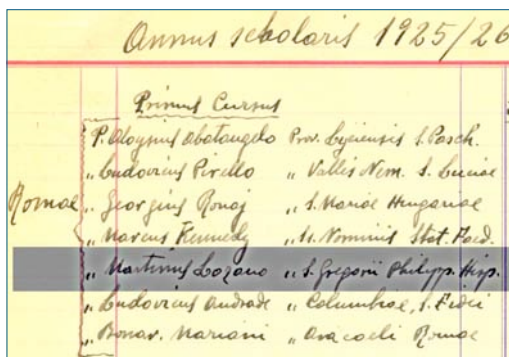 Annus scholaris 1925/26
Primus Cursus
P. Aloysius Abatangelo Prov. Lyciensis S. Pasch.
„ Ludovicus Pirello „ Vallis Nem. S. Luciae
Romae „ Georgius Ronaj „ S. Mariae Hungariae
„ Marcus Kennedy „ Ss. Nominis Stat. Foed.
„ Martinus Lozano „ S. Gregorii Philipp. Hisp.
„ Ludovicus Andrade „ Columbiae, S. Fidei
„ Bonav. Mariani „ Aracoeli Romae